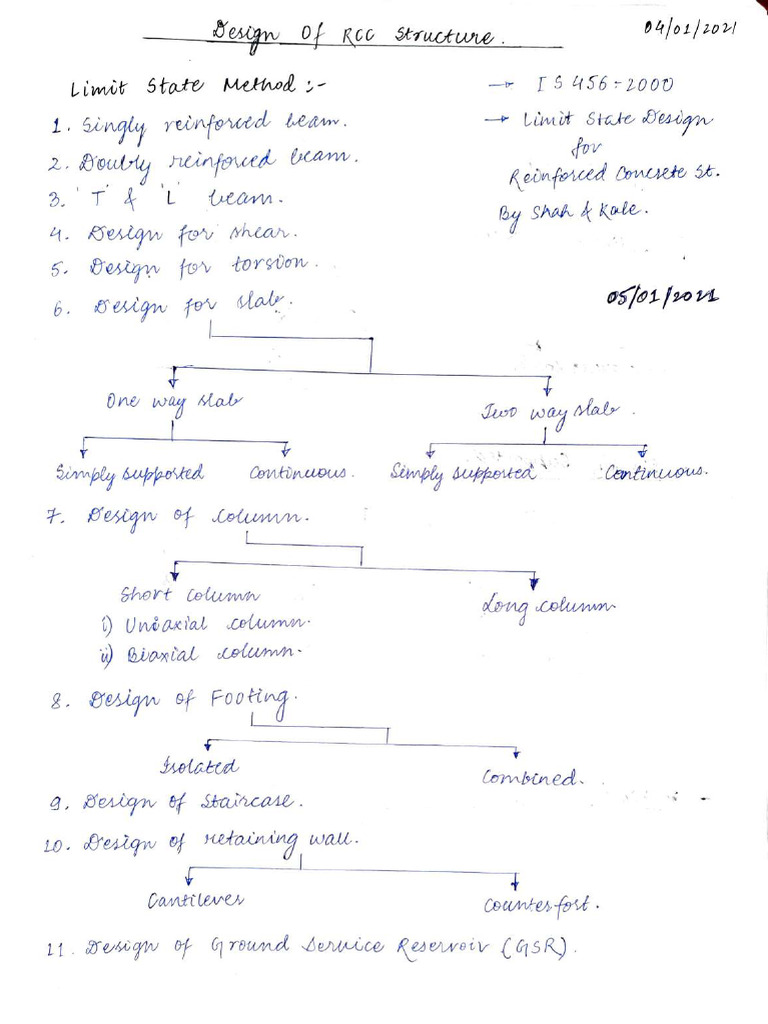 Design Of RCC Structure.
04/01/2021
Limit State Method :-
→ IS 456-2000
1. Singly reinforced beam.
→ Limit State Design
for
Reinforced Concrete St.
By Shah & Kale.
2. Doubly reinforced beam.
3. 'T' & 'L' beam.
4. Design for shear.
5. Design for torsion.
6. Design for slab.
05/01/2021
One way slab
Two way slab.
Simply supported
Continuous.
Simply supported
Continuous.
7. Design of column.
Short column
Long column
i) Uniaxial column.
ii) Biaxial column.
8. Design of Footing.
Isolated
Combined.
9. Design of Staircase.
10. Design of retaining wall.
Cantilever
Counter fort.
11. Design of Ground Service Reservoir (GSR).